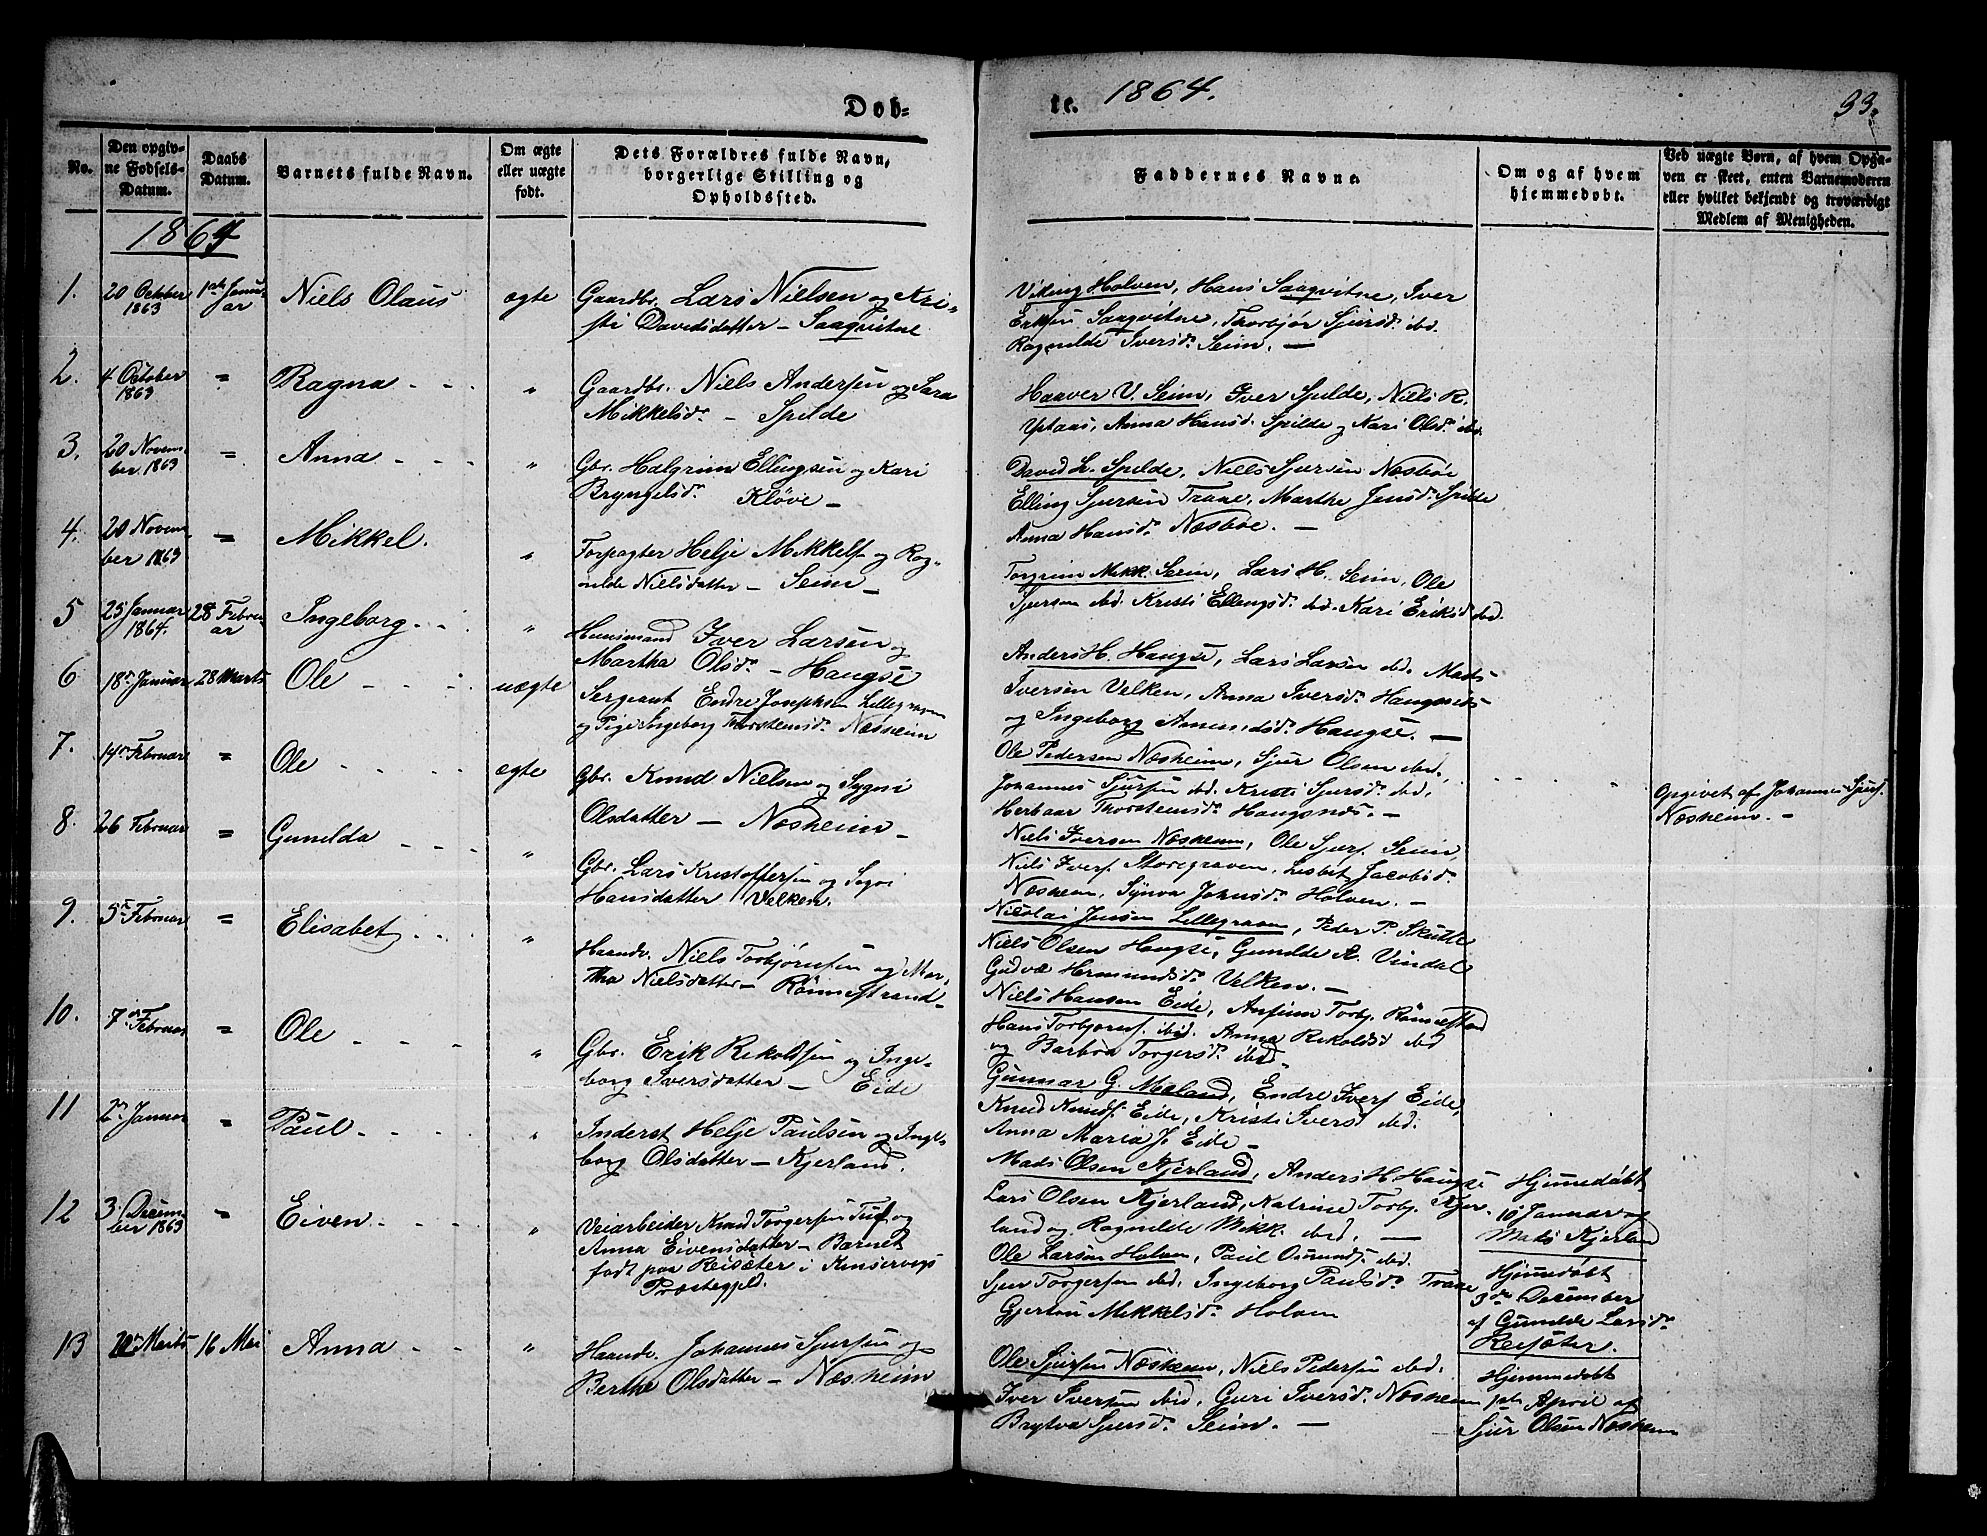 Døb-
te. 1864.
33.
No.
Den opgiv-
ne Fødsels-
Datum.
Daabs
Datum.
Barnets fulde Navn.
Om ægte
eller uægte
født.
Dets Forældres fulde Navn,
borgerlige Stilling og
Opholdssted.
Faddernes Navne.
Om og af hvem
hjemmedøbt.
Ved uægte Børn, af hvem Opga-
ven er skeet, enten Barnemoderen
eller hvilket bekjendt og troværdigt
Medlem af Menigheden.
1864
1. 20 October 1863
1ste Janu-
ar
Niels Olaus
ægte
Gaardbr. Lars Nielsen og Kri-
sti Davidsdatter - Saaqvitne
Viking Holven, Hans Saaqvitne, Iver
Eriksen Saaqvitne, Thorbjør Sjursd. ibd.
Ragnilde Iversd. Seim. -
2. 4 October 1863
"
Ragna
"
Gaardbr. Niels Andersen og Sara
Mikkelsdr - Spilde
Haaver V. Seim, Iver Spilde, Niels R.
Anna Hansd. Spilde og Kari Olsd. ibd.
3. 20 Novem-
ber 1863
"
Anna
"
Gbr. Halgrim Ellingsen og Kari
Bryngelsdr Kløve -
David L. Spilde, Niels Sjursen Næsbøe
Elling Sjursen Traae, Marthe Jensd. Spilde
Anna Hansdr Næsbøe. -
4. 20 Novem-
ber 1863
"
Mikkel.
"
Forpagter Helje Mikkels. og Rag-
nilde Nielsdatter - Seim -
Torgrim Mikk. Seim, Lars H. Seim, Ole
Sjursen ibd. Kristi Ellingsdr ibd. Kari Eriksd ibd.
5 25 Januar
1864.
28 Febru-
ar
Ingeborg
"
Huusmand Iver Larsen og
Martha Olsdr - Haugse
Anders H. Haugse, Lars Larsen ibd. Mads
Iversen Velken, Anna Iversdr
og Ingeborg Haugse. -
6 18de Januar
28 Marts
Ole
uægte
Sergeant Endre Josephsen Lillegraven
og Pige Ingeborg Thorsteinsdr Næsheim
Ole Pedersen Næsheim, Sjur Olsen ibd.,
Johannes Sjursen ibd. Kristi Sjursdr ibd,
Herbaar Thorsteinsdr Haugsnæs. -
Opgivet af Johannes Sjurs.
Næsheim. -
7. 14de Februar
"
Ole
ægte
Gbr. Knud Nielsen og Sygni
Olsdatter - Næsheim -
Niels Iversen Næsheim, Ole Sjurs. Seim,
Niels Ivers. Storegraven, Lisbet Jacobsd.
Næsheim, Synva Johnsdr Holven. -
8. 26 Februar
"
Gunilda
"
Gbr. Lars Kristoffersen og Sygni
Hansdatter Velken
Nicolai Jensen Lillegraven, Peder P. Skutle
Niels Olsen Haugse, Gunilde A. Vindal
Gudvæ Hermundsdr Velken. -
9. 5te Februar
"
Elisabet
"
Haandv. Niels Torbjørnsen og Mar-
tha Nielsdatter - Rønnestrand -
Niels Hansen Eide, Anfinn Torb. Rønnestrand
Hans Torbjørns. ibid. Anna Rikoldsd ibd
og Barbra Torgersdr ibid
10. 7de Februar
"
Ole
"
Gbr. Erik Rikoldsen og Inge-
borg Iversdatter - Eide
Gunnar G. Mæland, Endre Ivers. Eide,
Knud Knuds. Eide, Kristi Iversd ibd.
Anna Maria J. Eide -
11 2den Januar
"
Paul
"
Inderst Helje Paulsen og Inge-
borg Olsdatter - Kjerland.
Mads Olsen Kjerland, Anders H Haugse
Lars Olsen Kjerland, Katrine Torb. Kjer-
land og Ragnilde Mikk. ibd. -
Hjemmedøbt
10 Januar af
Mads Kjerland
12 3 Decem-
ber 1863
"
Eiven
"
Veiarbeider Knud Torgersen Tufl og
Anna Eivensdatter - Barnet
født paa Reisæter i Kinservigs
Præstegjeld.
Ole Larsen Holven, Paul Osmunds. ibid.
Sjur Torgersen ibd. Ingeborg Paulsdr Traae
Gjertru Mikkelsdr Holven
Hjemmedøbt
3de December
af Gunilde Larsdr
Reisæter.
13 12 Marts
16 Mai
Anna
"
Haandv. Johannes Sjursen og
Berthe Olsdatter - Næsheim
Ole Sjursen Næsheim, Niels Pedersen ibd.
Iver Iversen ibid, Guri Iversdr Næsheim
Brytva Sjursdr Seim. -
Hjemmedøbt
1ste April af
Sjur Olsen Næsheim